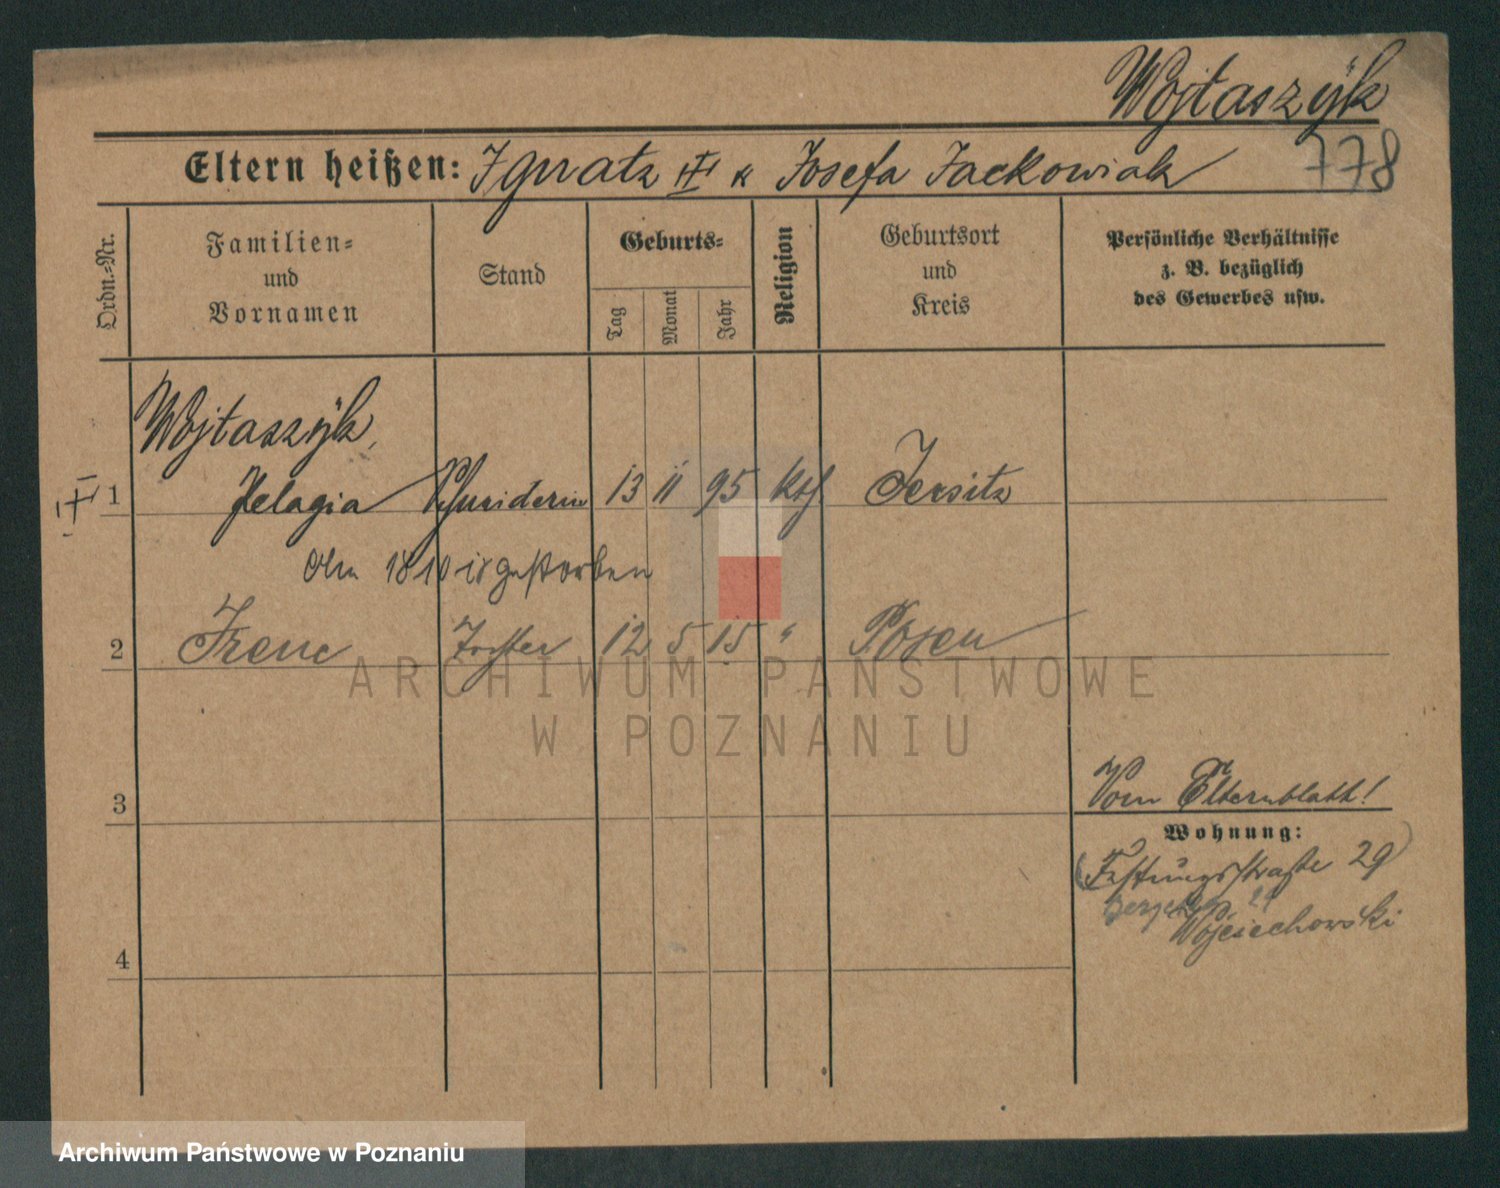 Wojtaszÿk
Eltern heißen: Ignatz III & Josefa Jackowiak 778
Ordn.-Nr.
Familien-
und
Vornamen
Stand
Geburts-
Tag
Monat
Jahr
Religion
Geburtsort
und
Kreis
Persönliche Verhältnisse
z. B. bezüglich
des Gewerbes usw.
Wojtaszÿk,
1 Pelagia Schneiderin 13 11 95 kth Jersitz
Am 18 10 18 gestorben
2 Irene Tochter 12 5 15 " Posen
3
Vom Elternblatt!
Wohnung:
(Festungsstraße 29)
24
Wojciechowski
4
ARCHIWUM PAŃSTWOWE
W POZNANIU
Archiwum Państwowe w Poznaniu